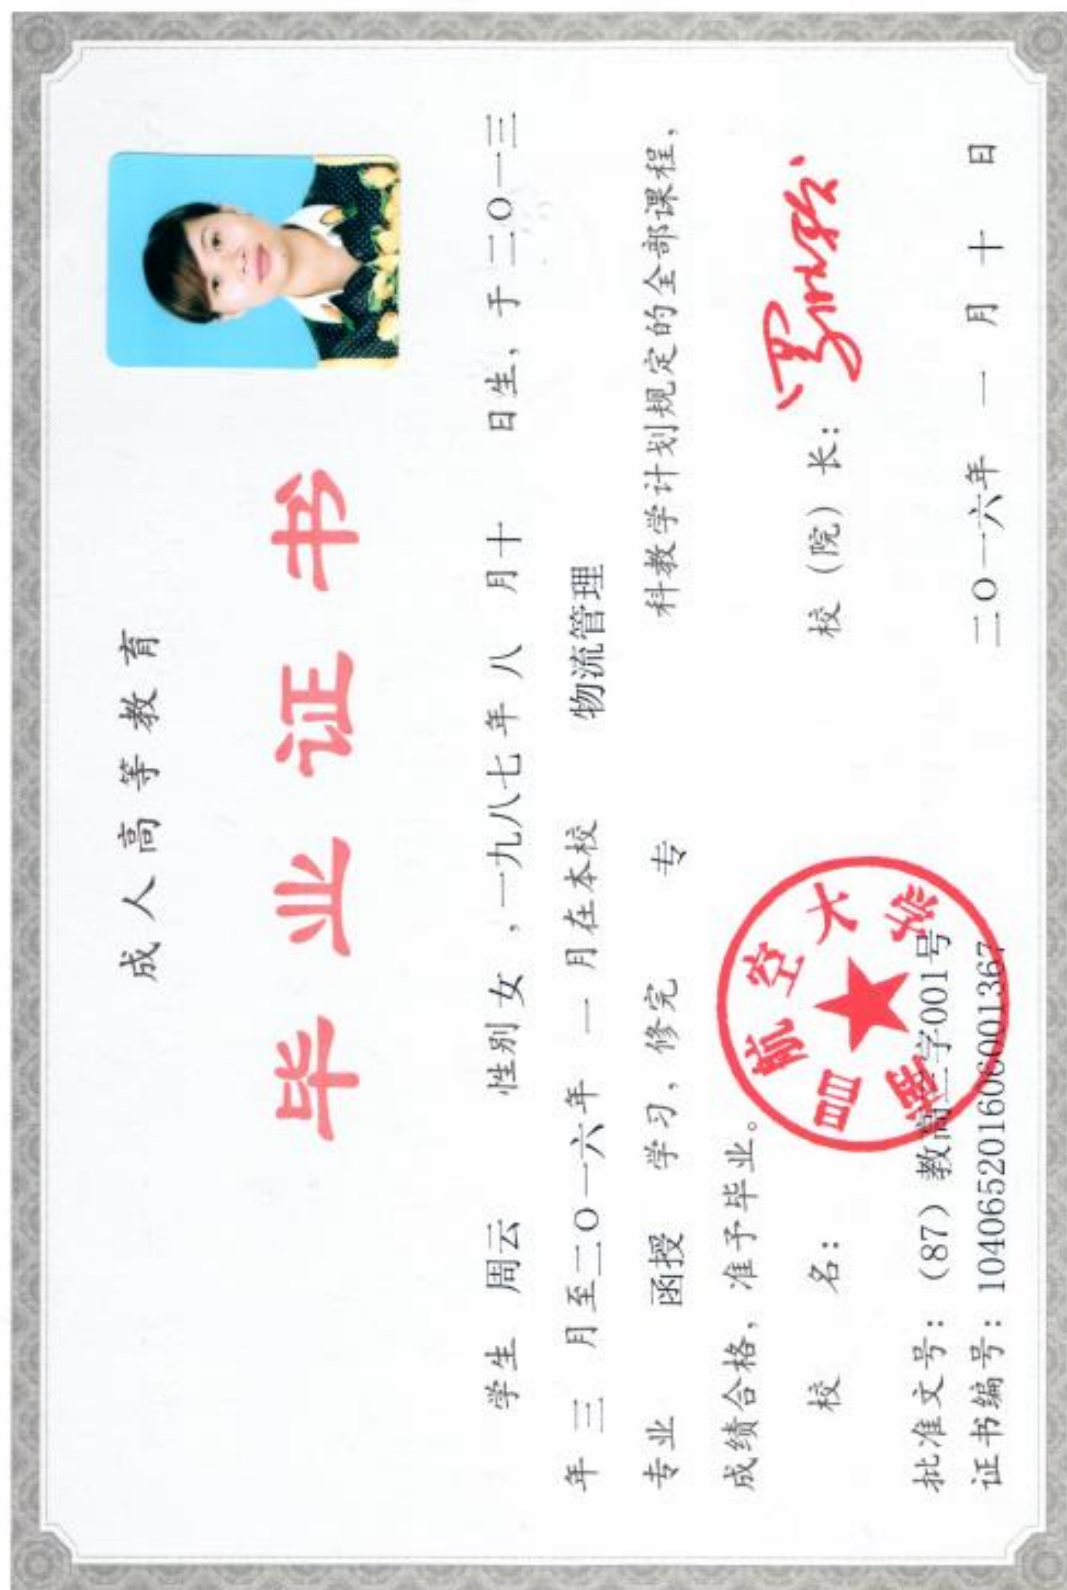 成人高等教育
毕业证书
学生 周云 性别 女 , 一九八七 年 八 月 十 日生, 于 二〇一三
年 三 月至 二〇一六年 一 月在本校 物流管理
专业 函授 学习, 修完 专 科教学计划规定的全部课程,
成绩合格, 准予毕业。
校 名: 南昌航空大学 校(院)长:
批准文号: (87)教高三字001号
证书编号: 104065201606001367 二〇一六年 一 月 十 日